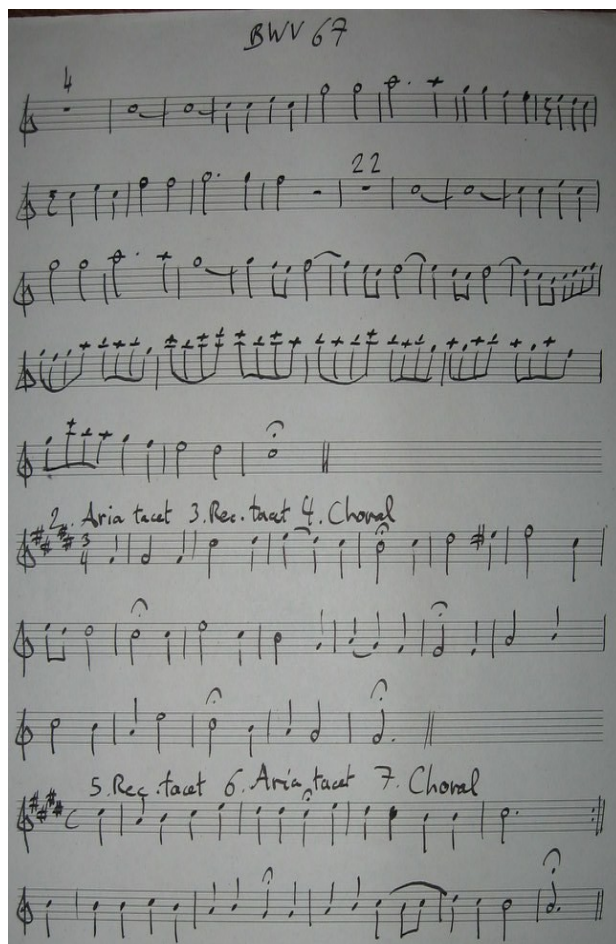 BWV 67
4
22
2. Aria tacet 3. Rec. tacet 4. Choral
3
4
5. Rec. tacet 6. Aria tacet 7. Choral
C